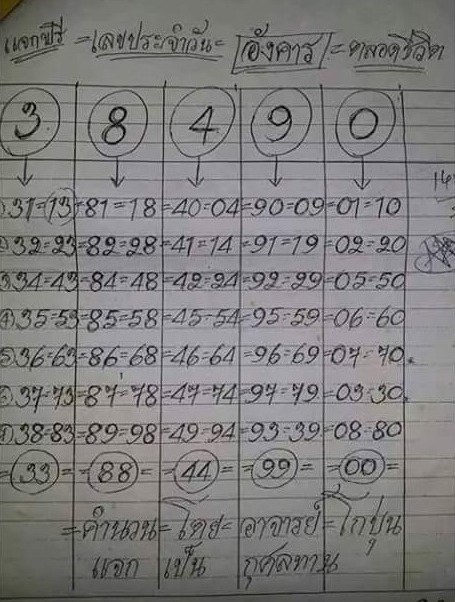 แจกฟรี = เลขประจำวัน = อังคาร = ตลอดชีวิต
3 8 4 9 0
31=13=81=18=40=04=90=09=01=10
②32=23=82=28=41=14=91=19=02=20
③34=43=84=48=42=24=92=29=05=50
④35=53=85=58=45=54=95=59=06=60
⑤36=63=86=68=46=64=96=69=07=70
⑥37=73=87=78=47=74=97=79=03=30
⑦38=83=89=98=49=94=93=39=08=80
=33= =88= =44= =99= =00=
=คำนวน=โดย=อาจารย์=โกปุน
แจก เป็น กุศลทาน